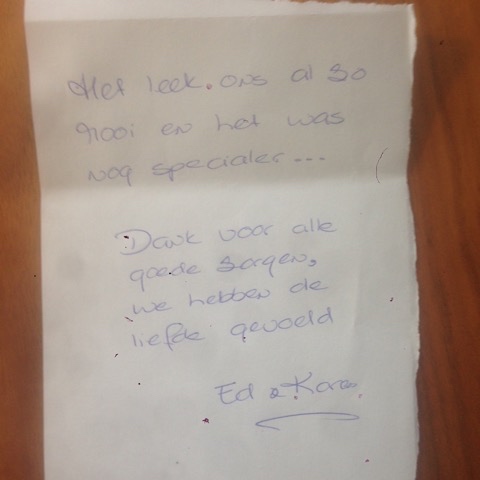 Het leek ons al zo
mooi en het was
nog specialer...
Dank voor alle
goede zorgen,
we hebben de
liefde gevoeld
Ed & Karen